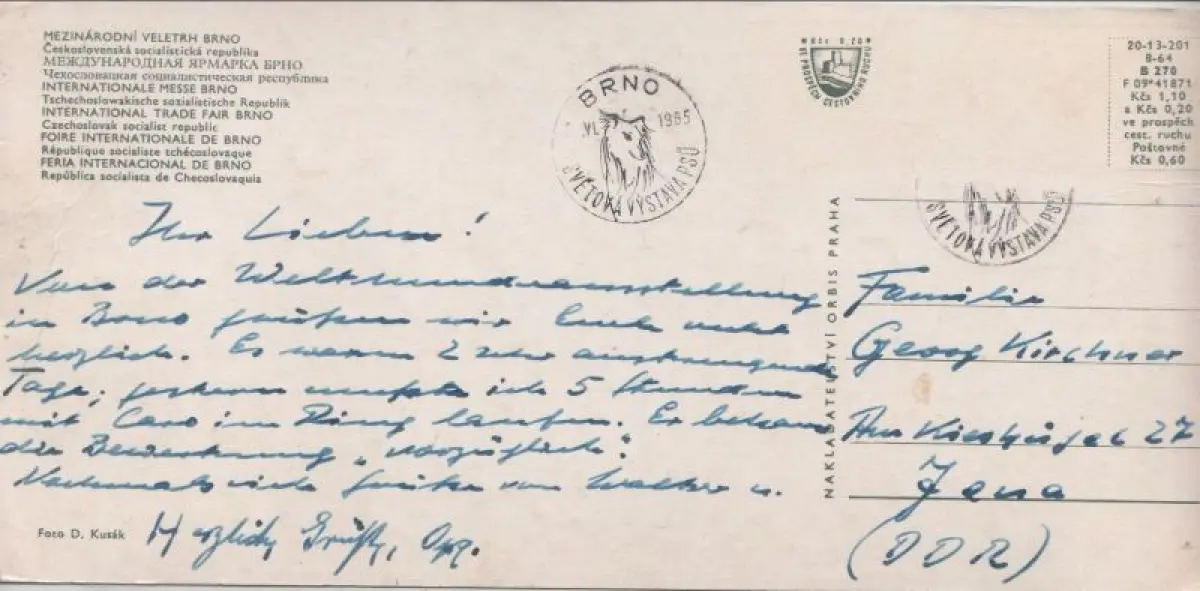 MEZINÁRODNÍ VELETRH BRNO
Československá socialistická republika
МЕЖДУНАРОДНАЯ ЯРМАРКА БРНО
Чехословацкая социалистическая республика
INTERNATIONALE MESSE BRNO
Tschechoslowakische sozialistische Republik
INTERNATIONAL TRADE FAIR BRNO
Czechoslovak socialist republic
FOIRE INTERNATIONALE DE BRNO
République socialiste tchécoslovaque
FERIA INTERNACIONAL DE BRNO
República socialista de Checoslovaquia
BRNO
VI. 1965
SVĚTOVÁ VÝSTAVA PSŮ
Kčs 0.20
VE PROSPĚCH CESTOVNÍHO RUCHU
20-13-201
B-64
B 270
F 09*41871
Kčs 1,10
a Kčs 0,20
ve prospěch
cest. ruchu
Poštovné
Kčs 0,60
SVĚTOVÁ VÝSTAVA PSŮ
Ihr Lieben!
Von der Welthundeausstellung
in Brno grüßen wir Euch recht
herzlich. Es waren 2 sehr anstrengende
Tage; gestern mußte ich 5 Stunden
mit Caro im Ring laufen. Er bekam
die Bewertung „vorzüglich".
Nochmals viele Grüße von Walter u.
Herzliche Grüße,
Foto D. Kusák
NAKLADATELSTVÍ ORBIS PRAHA
Familie
Georg Kirchner
Am Kieshügel 27
Jena
(DDR)